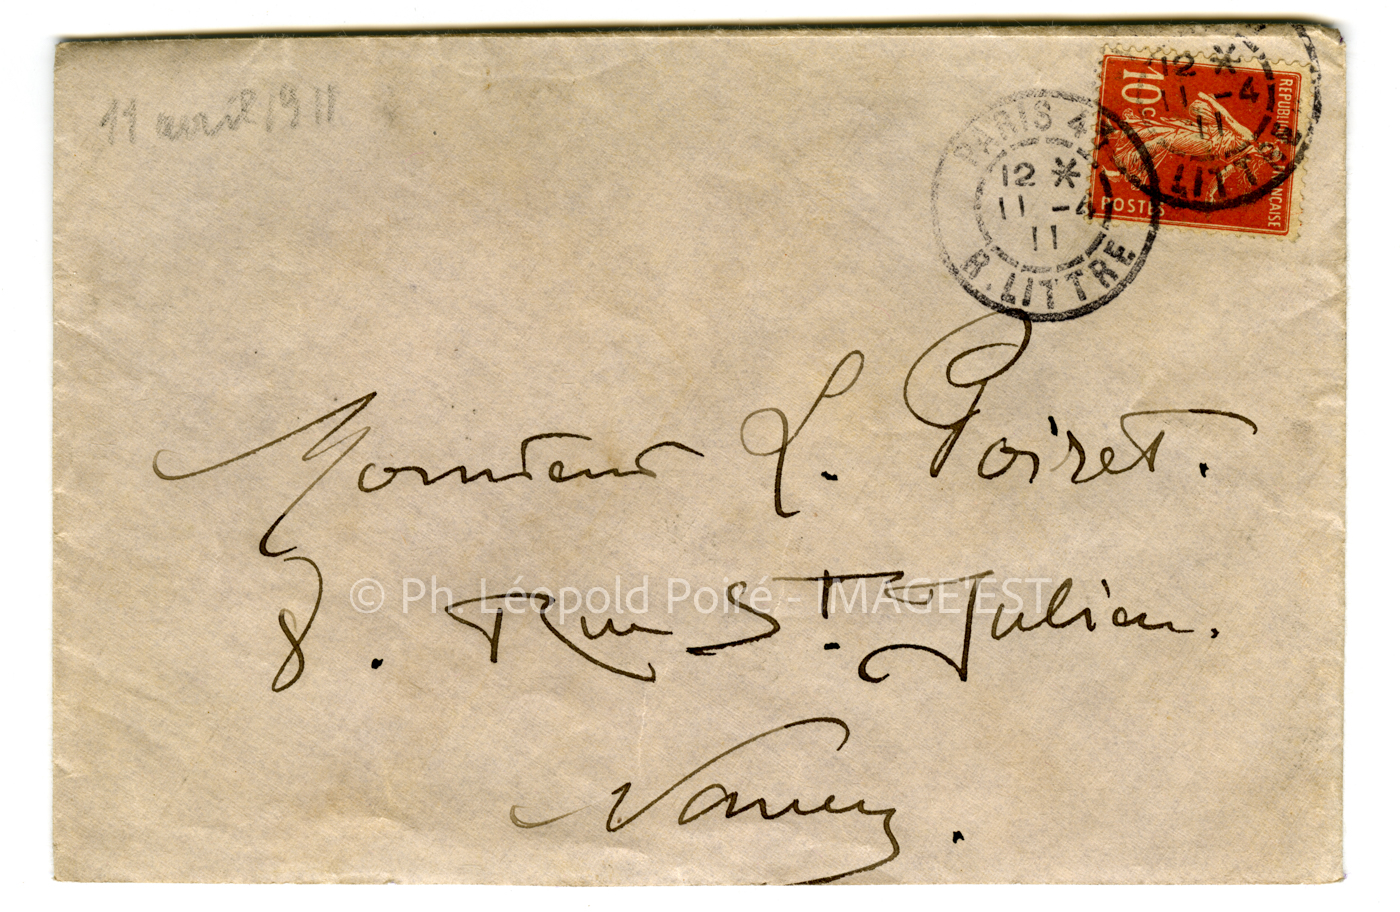 11 avril 1911
REPUBLIQUE FRANÇAISE
10 c.
POSTES
12 *
11 -4
11
LITTRE
PARIS 44
12 *
11 -4
11
R. LITTRE
Monsieur L. Poiret.
8. Rue St. Julien.
© Ph. Léopold Poiré - IMAGE'EST
Nancy.